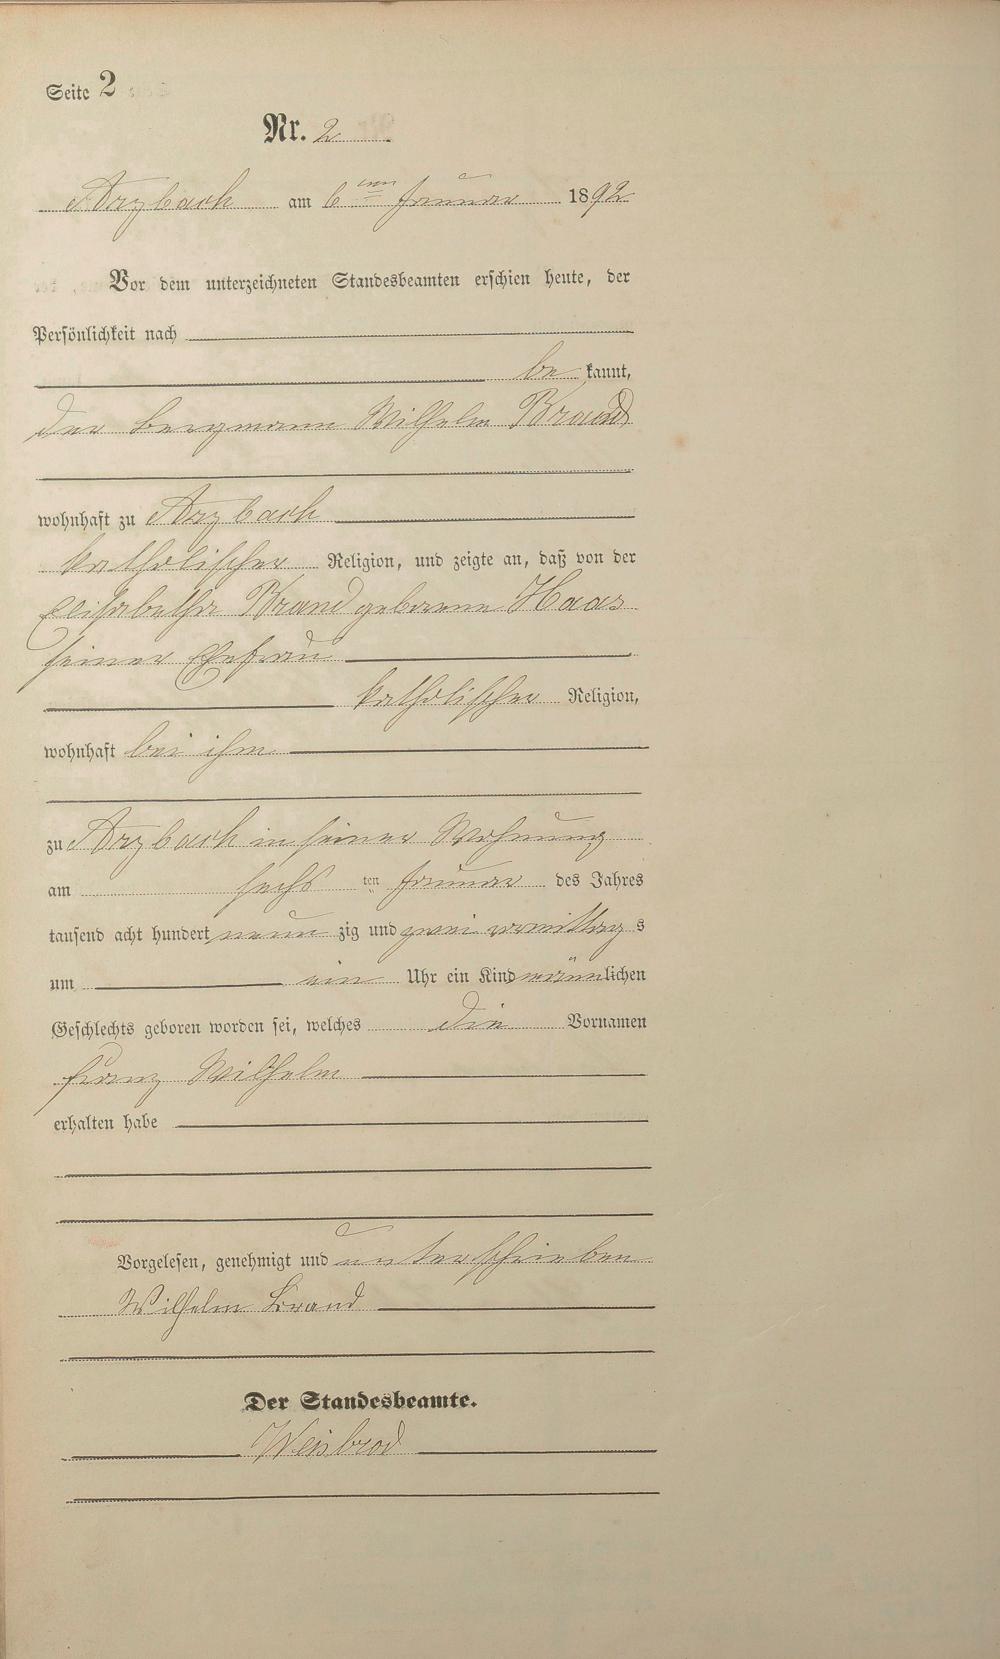 Seite 2
Nr. 2
Arzbach am 6ten Januar 1892
Vor dem unterzeichneten Standesbeamten erschien heute, der
Persönlichkeit nach
be kannt,
der Bergmann Wilhelm Brand
wohnhaft zu Arzbach
katholischer Religion, und zeigte an, daß von der
Elisabetha Brand geborene Haas
seiner Ehefrau
katholischer Religion,
wohnhaft bei ihm
zu Arzbach in seiner Wohnung
am sechs ten Januar des Jahres
tausend acht hundert neun zig und zwei vormittag s
um ein Uhr ein Kind männlichen
Geschlechts geboren worden sei, welches die Vornamen
Franz Wilhelm
erhalten habe
Vorgelesen, genehmigt und unterschrieben
Wilhelm Brand
Der Standesbeamte.
Weisbrod